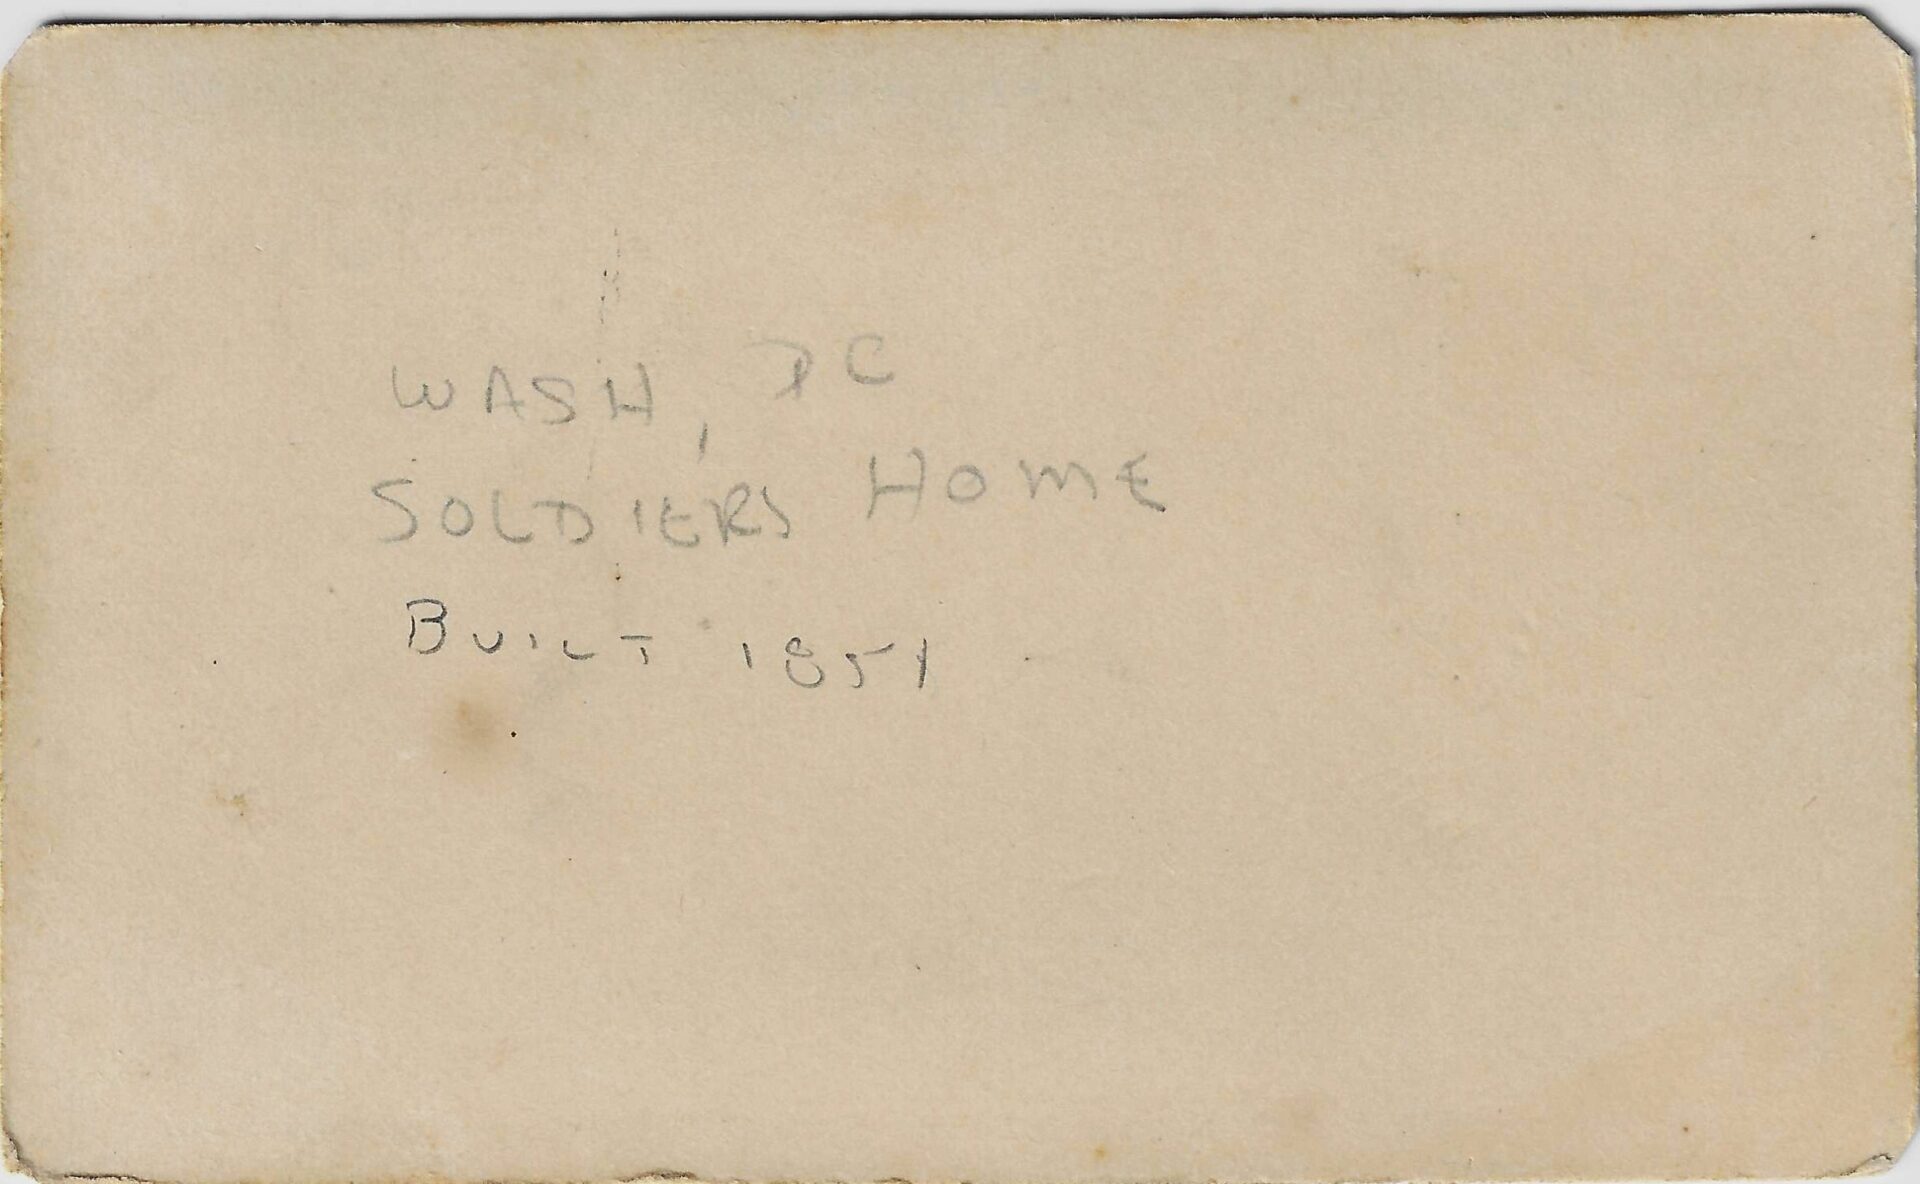 WASH, DC
SOLDIERS HOME
BUILT 1851